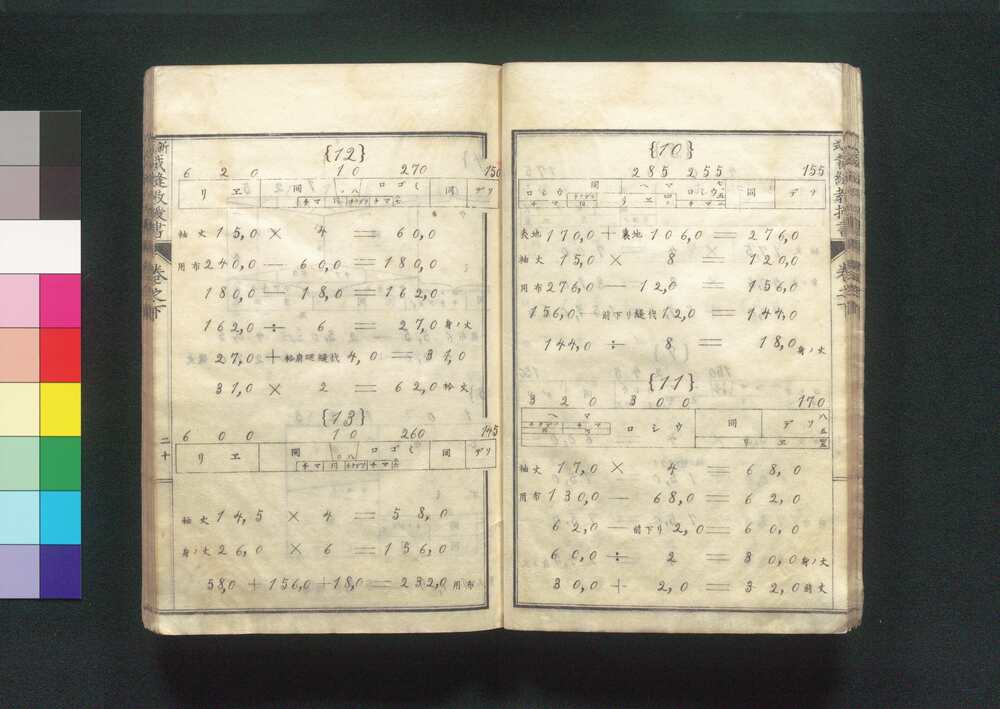 {10}
285 255 155
ロシウ 間 ヘマ ロシウ 間 デソ
チマ リエ チマ
表地 170,0 + 裏地 106,0 = 276,0
袖丈 15,0 × 8 = 120,0
用布 276,0 − 12,0 = 156,0
156,0 − 前下リ縫代 12,0 = 144,0
144,0 ÷ 8 = 18,0 身ノ丈
{11}
320 300 170
ヘマ ロシウ 間 デソ
リエ
袖丈 17,0 × 4 = 68,0
用布 130,0 − 68,0 = 62,0
62,0 − 前下リ 2,0 = 60,0
60,0 ÷ 2 = 30,0 身ノ丈
30,0 + 2,0 = 32,0 前丈
{12}
620 10 270 150
リエ 間 ロゴミ 間 デソ
チマ チマ
袖丈 15,0 × 4 = 60,0
用布 240,0 − 60,0 = 180,0
180,0 − 18,0 = 162,0
162,0 ÷ 6 = 27,0 身ノ丈
27,0 + 縫代 4,0 = 31,0
31,0 × 2 = 62,0 衿丈
{13}
600 10 260 145
リエ 間 ロゴミ 間 デソ
チマ チマ
袖丈 14,5 × 4 = 58,0
身ノ丈 26,0 × 6 = 156,0
58,0 + 156,0 + 18,0 = 232,0 用布
裁縫教授書 卷之下
二十